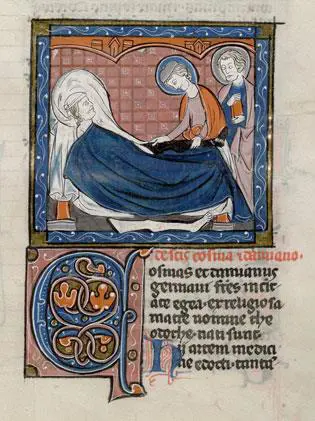 De scis cosma et damiano.
Cosmas et damianus
germani fr̃es in ciui
tate egea. ex religiosa
matre nomine the
otoche. nati sunt.
Hij artem medici
ne edocti. tantã